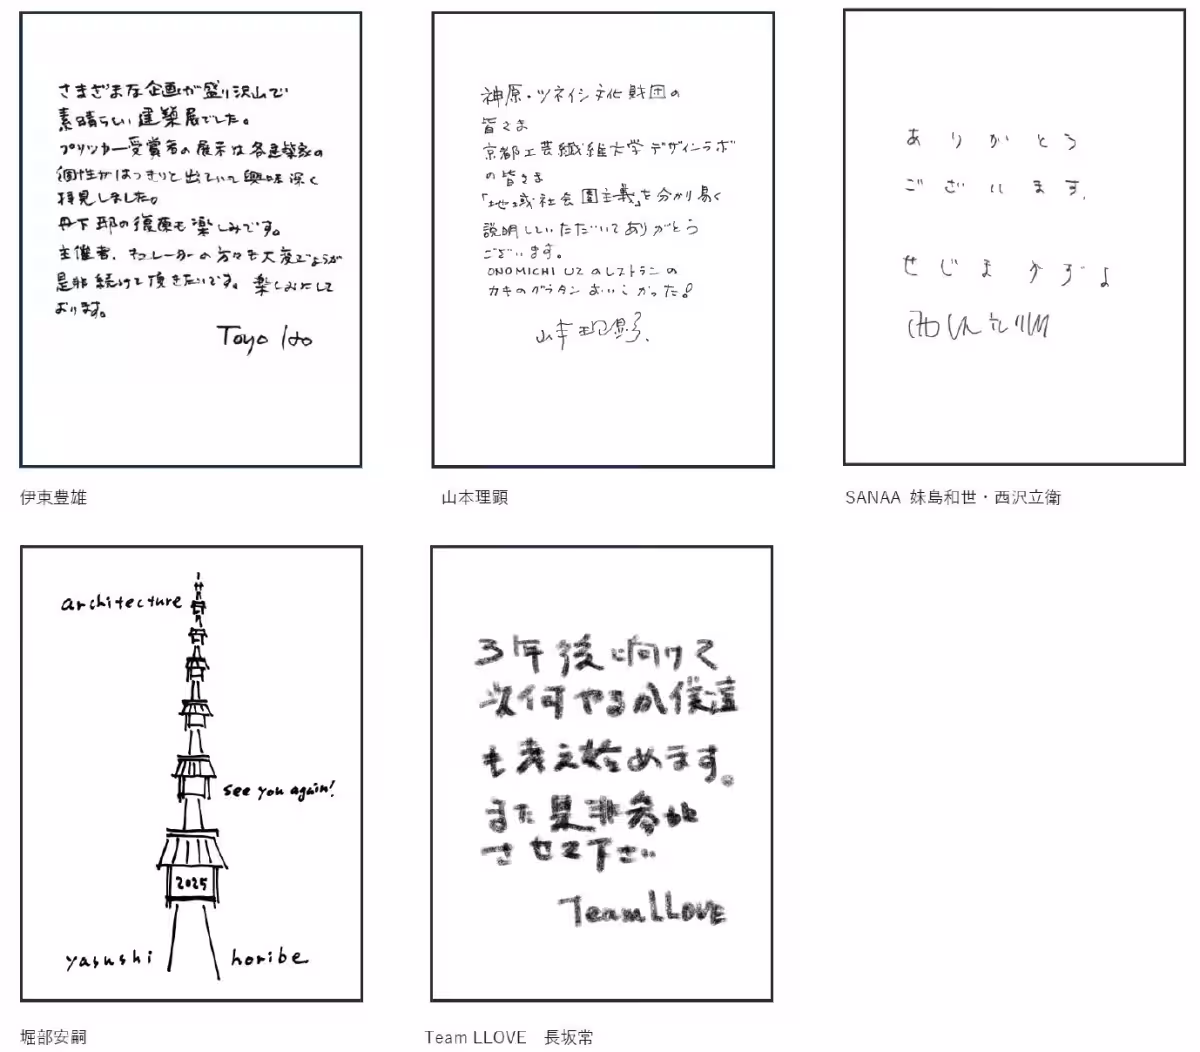 さまざまな企画が盛り沢山で
素晴らしい建築展でした。
プリツカー受賞者の展示は各建築家の
個性がはっきりと出ていて興味深く
拝見しました。
丹下邸の復原も楽しみです。
主催者、キュレーターの方々も大変でしょうが
是非続けて頂きたいです。楽しみにして
おります。
Toyo Ito
伊東豊雄
神原・ツネイシ文化財団の
皆さま
京都工芸繊維大学デザインラボ
の皆さま
「地域社会圏主義」を分かり易く
説明していただいてありがとう
ございます。
ONOMICHI U2 のレストランの
カキのグラタンおいしかった!
山本理顕
山本理顕
ありがとう
ございます。
せじまかずよ
西沢立衛
SANAA 妹島和世・西沢立衛
architecture
see you again!
2025
yasushi horibe
堀部安嗣
3年後に向けて
次何やるか僕達
も考え始めます。
また是非参加
させて下さい
Team LLOVE
Team LLOVE 長坂常